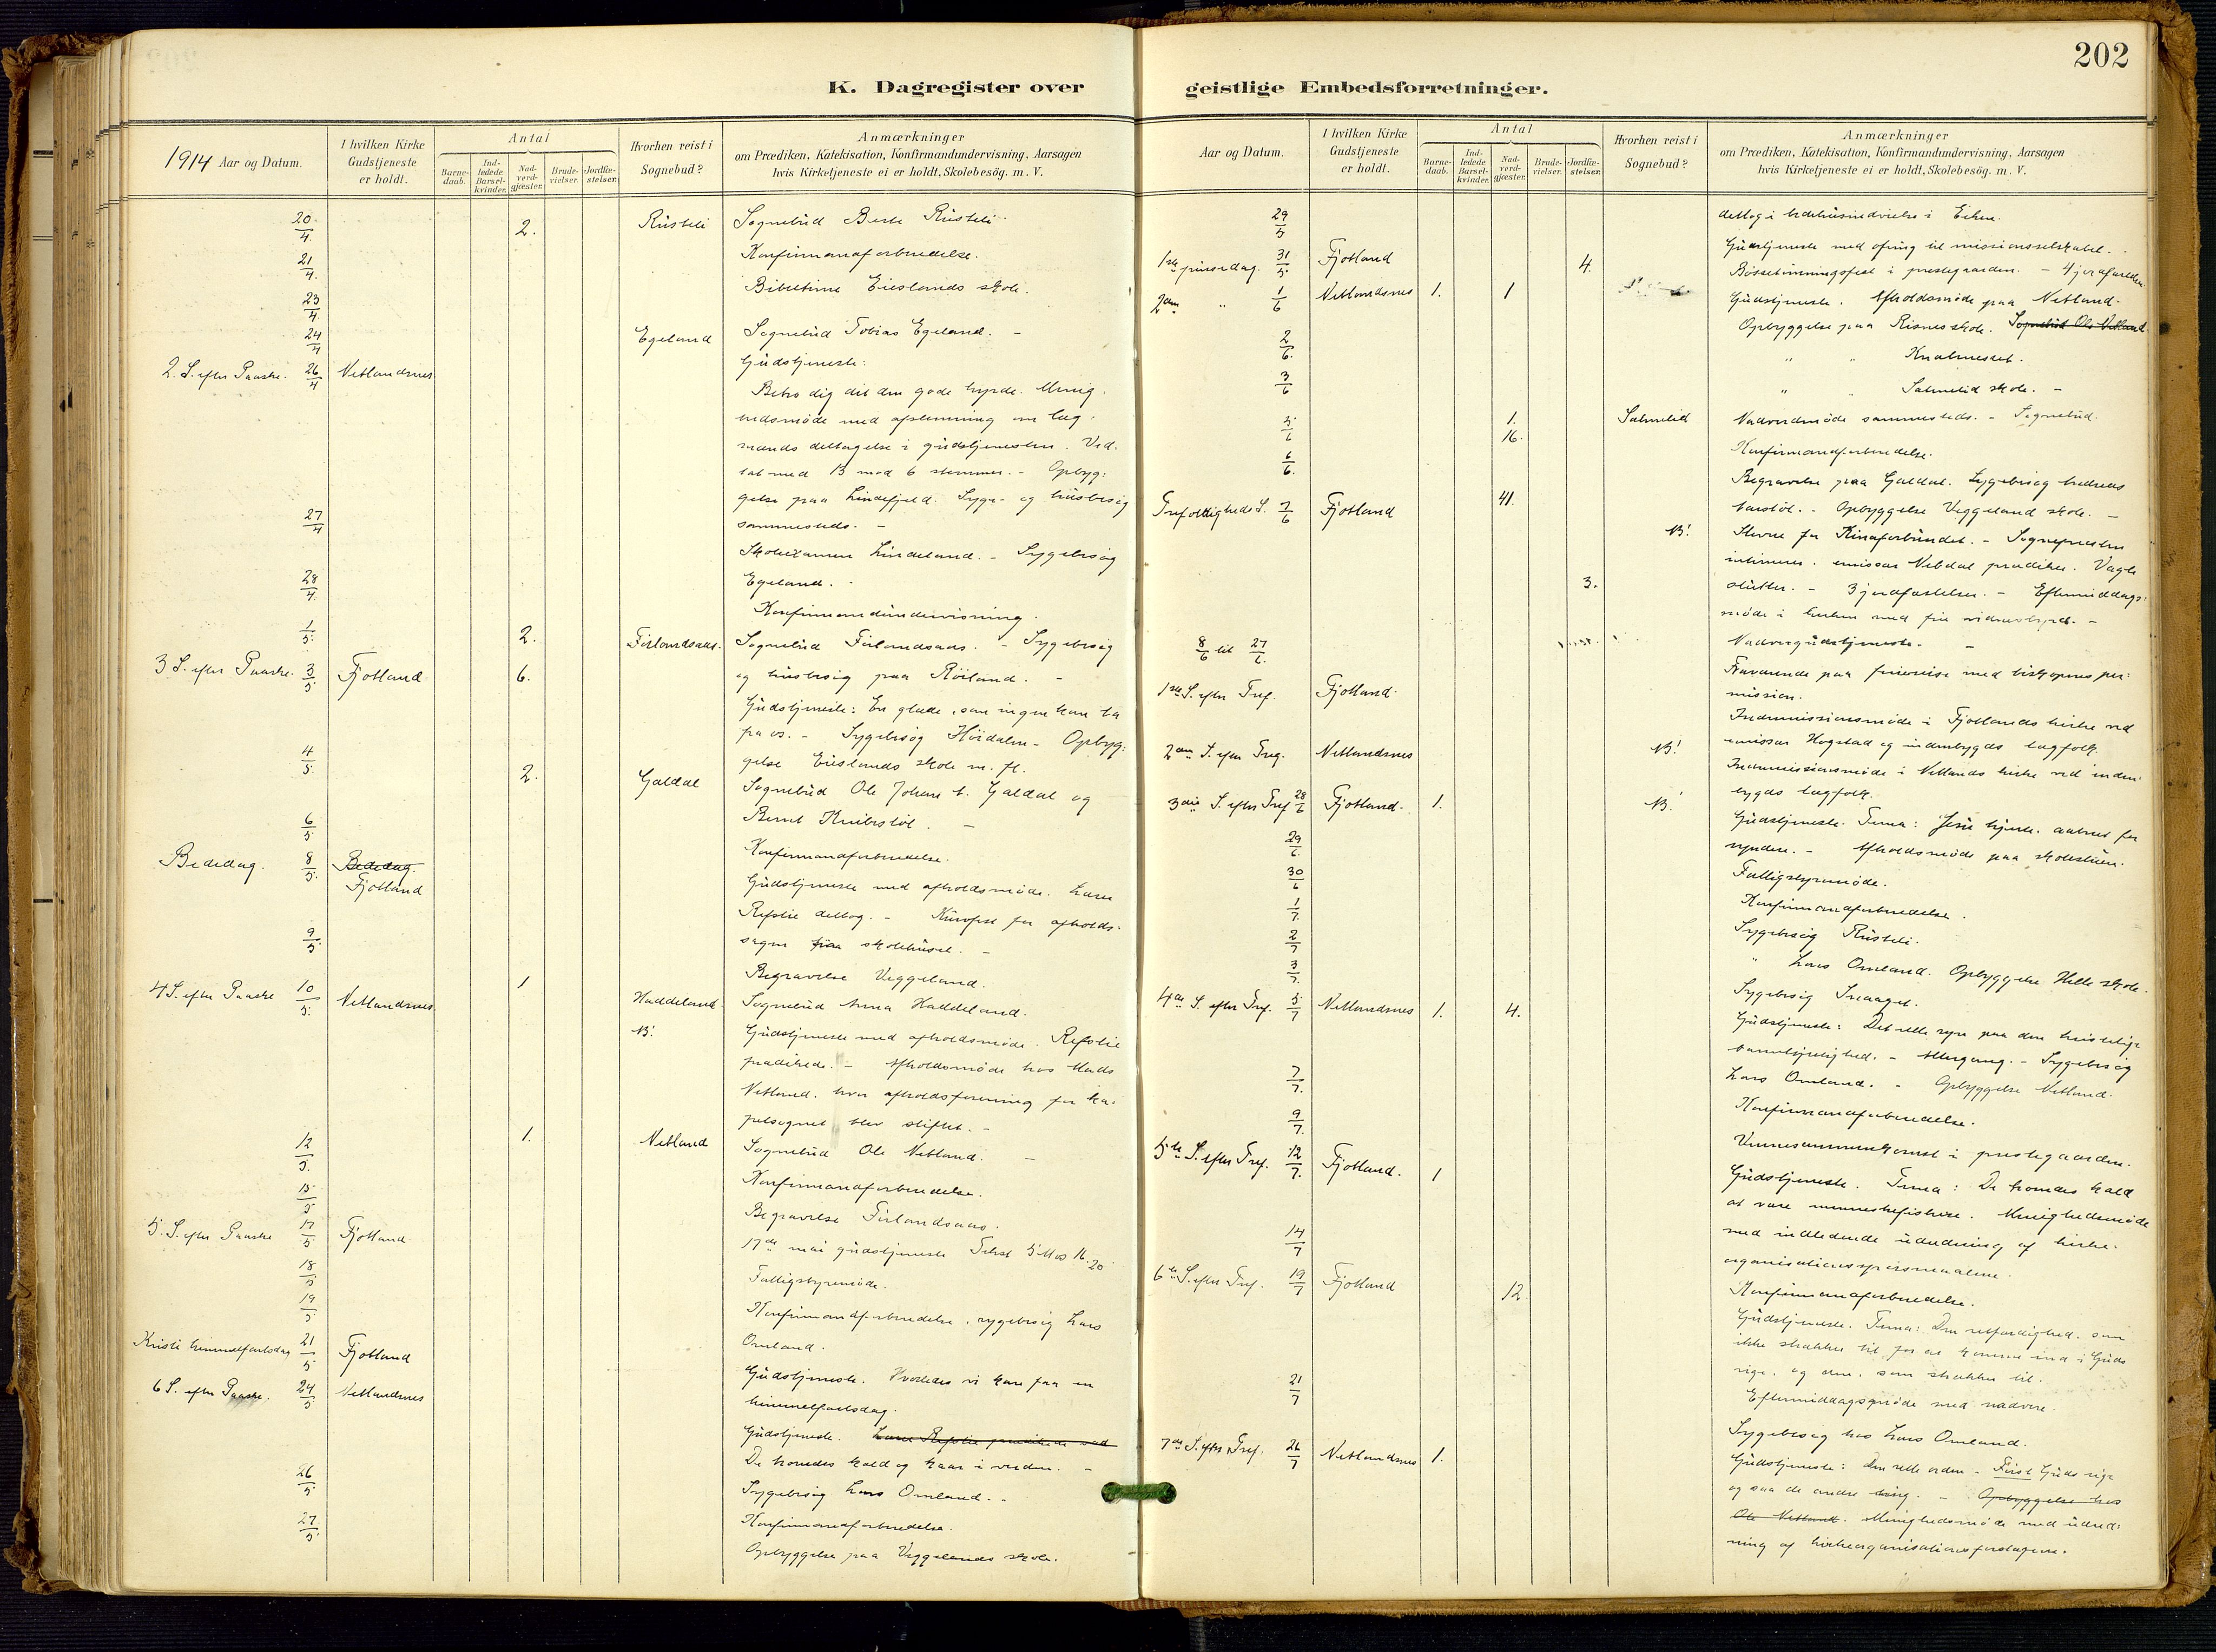 202
K. Dagregister over geistlige Embedsforretninger.
1914 Aar og Datum.
I hvilken Kirke Gudstjeneste er holdt.
Antal
Barne-daab.
Ind-ledede Barsel-kvinder.
Nad-verd-gjæster.
Brude-vielser.
Jordfæ-stelser.
Hvorhen reist i Sognebud?
Anmærkninger
om Prædiken, Katekisation, Konfirmandundervisning, Aarsagen
hvis Kirketjeneste ei er holdt, Skolebesög. m. V.
20/4 2. Rüsteli Sognebüd Berte Rüsteli.
21/4 Konfirmanaforberedelse.
23/4 Bibeltime Eieslands skole.
24/4 Egeland Sognebüd Tobias Egeland. -
2. S. efter Paaske. 26/4 Netlandsnes Güdstjeneste:
Betro dig til den gode hyrde. Menig.
hedsmöde med afstemning om læg.
mands deltagelse i güdstjenesten. Ved.
tat med 13 mod 6 stemmer. - Opbyg.
gelse paa Lindefjeld. Syge- og hüsbesög
sammesteds. -
27/4 Skoleexamen Lindeland. - Sygebesög
Egeland.
28/4 Konfirmandündervisning.
1/5 2. Firlandsaas. Sognebüd Firlandsaas. - Sygebesög
og hüsbesög paa Röiland. -
3 S. efter Paaske. 3/5 Fjotland 6.
Güdstjeneste: En glæde, som ingen kan ta
fra os. - Sygebesög Höidalen - Opbyg:
gelse Eieslands skole m. fl.
4/5 2. Galdal Sognebüd Ole Johan t. Galdal og
Bernt Knibestöl. -
6/5 Konfirmandforberedelse.
Bededag. 8/5 Bededag. Fjotland Güdstjeneste med afholdsmöde. Lærer
Refstie deltog. - Kürvfest for afholds.
sagen paa skolehüset. -
9/5 Begravelse Veggeland.
4 S. efter Paaske 10/5 Netlandsnes 1 Haddeland Sognebüd Anna Haddeland.
NB! Güdstjeneste med afholdsmöde. Refstie
prædikede. - Afholdsmöde hos Mads
Netland, hvor afholdsforening for ka:
pelsognet blev stiftet. -
12/5 1. Netland Sognebüd Ole Netland. -
Konfirmandforberedelse.
15/5 Begravelse Firlandsaas.
5. S. efter Paaske 17/5 Fjotland 17de mai güdstjeneste Tekst 5 Mos 16.20
18/5 Fattigstyremöde.
19/5 Konfirmandforberedelse, sygebesög Lars
Omland.
Kristi himmelfartsdag 21/5 Fjotland Güdstjeneste. Hvorledes vi kan faa en
himmelfartsdag.
6 S. efter Paaske. 24/5 Netlandsnes Güdstjeneste. Lærer Refstie prædikede ved
De kristnes kald og kaar i verden. -
26/5 Sygebesög Lars Omland. -
Konfirmandforberedelse.
27/5 Opbyggelse paa Veggelands skole.
Aar og Datum.
I hvilken Kirke Gudstjeneste er holdt.
Antal
Barne-daab.
Ind-ledede Barsel-kvinder.
Nad-verd-gjæster.
Brude-vielser.
Jordfæ-stelser.
Hvorhen reist i Sognebud?
Anmærkninger
om Prædiken, Katekisation, Konfirmandundervisning, Aarsagen
hvis Kirketjeneste ei er holdt, Skolebesög. m. V.
29/5 deltog i bedehüsindvielse i Eiken.
1ste pinsedag. 31/5 Fjotland 4. Güdstjeneste med ofring til missionsselskabet.
Bössetömningsfest i prestegaarden. - 4 jordfæstelser.
2den " 1/6 Netlandsnes 1. 1 Güdstjeneste. Afholdsmöde paa Netland.
Opbyggelse paa Risnes skole. Sognebüd Ole Netland
2/6 " " Knabenset.
3/6 " " Salmelid skole. -
5/6 1. 16. Salmelid Nadverdmöde sammesteds. - Sognebüd.
6/6 Konfirmandforberedelse.
Begravelse paa Galdal. Sygebesög
Opbyggelse Veggeland skole. -
Trefoldigheds S. 7/6 Fjotland 41. NB! Stevne for Kinaforbündet. - Sognepresten
emissær Nebdal prædiker. Vagle
slütter. - 3 jordfæstelser. - Eftermiddags:
3. möde i kirken med frie vidnesbyrd. -
Nadvergüdstjeneste. -
8/6 til 27/6. Fraværende paa feriereise med biskopens per:
mission.
1ste S. efter Tref. Fjotland Indremissionsmöde i Fjotlands kirke ved
emissær Hogstad og indenbygds lægfolk.
2den S. efter Tref. Netlandsnes NB! Indremissionsmöde i Netlands kirke ved inden:
bygds lægfolk.
3die S. efter Tref 28/6 Fjotland. 1. NB! Güdstjeneste. Tema: Jesu hjerte aabnet for
syndere. - Afholdsmöde paa skolestüen.
29/6 Fattigstyremöde.
30/6 Konfirmandforberedelse.
1/7 Sygebesög Rüsteli.
2/7 " Lars Omland. Opbyggelse Helle skole.
3/7 Sygebesög
4de S. efter Tref. 5/7 Netlandsnes 1. 4. Güdstjeneste: Det rette syn paa den kristelige
barmhjertighed. - Altergang. - Sygebesög
Lars Omland. - Opbyggelse Netland.
7/7. Konfirmandforberedelse.
9/7. Vennesammenkomst i prestegaarden.
5te S. efter Tref. 12/7. Fjotland. 1 Güdstjeneste. Tema: De kristnes kald
at være menneskefiskere. Menighedsmöde
med indledende üdredning af kirke.
organisationsspörsmaalene.
14/7 Konfirmandforberedelse.
6te S. efter Tref. 19/7 Fjotland 12 Güdstjeneste. Tema: Den retfærdighed, som
ikke strækker til for at komme ind i Güds
rige, og den, som strækker til.
Eftermiddagsmöde med nadvere.
21/7 Sygebesög hos Lars Omland.
7de S. efter Tref. 26/7 Netlandsnes 1. Güdstjeneste: Den rette orden - Först Güds rige
og saa de andre ting. - Opbyggelse hos
Ole Netland. Menighedsmöde med üdred:
ning af kirkeorganisationsforslagene.